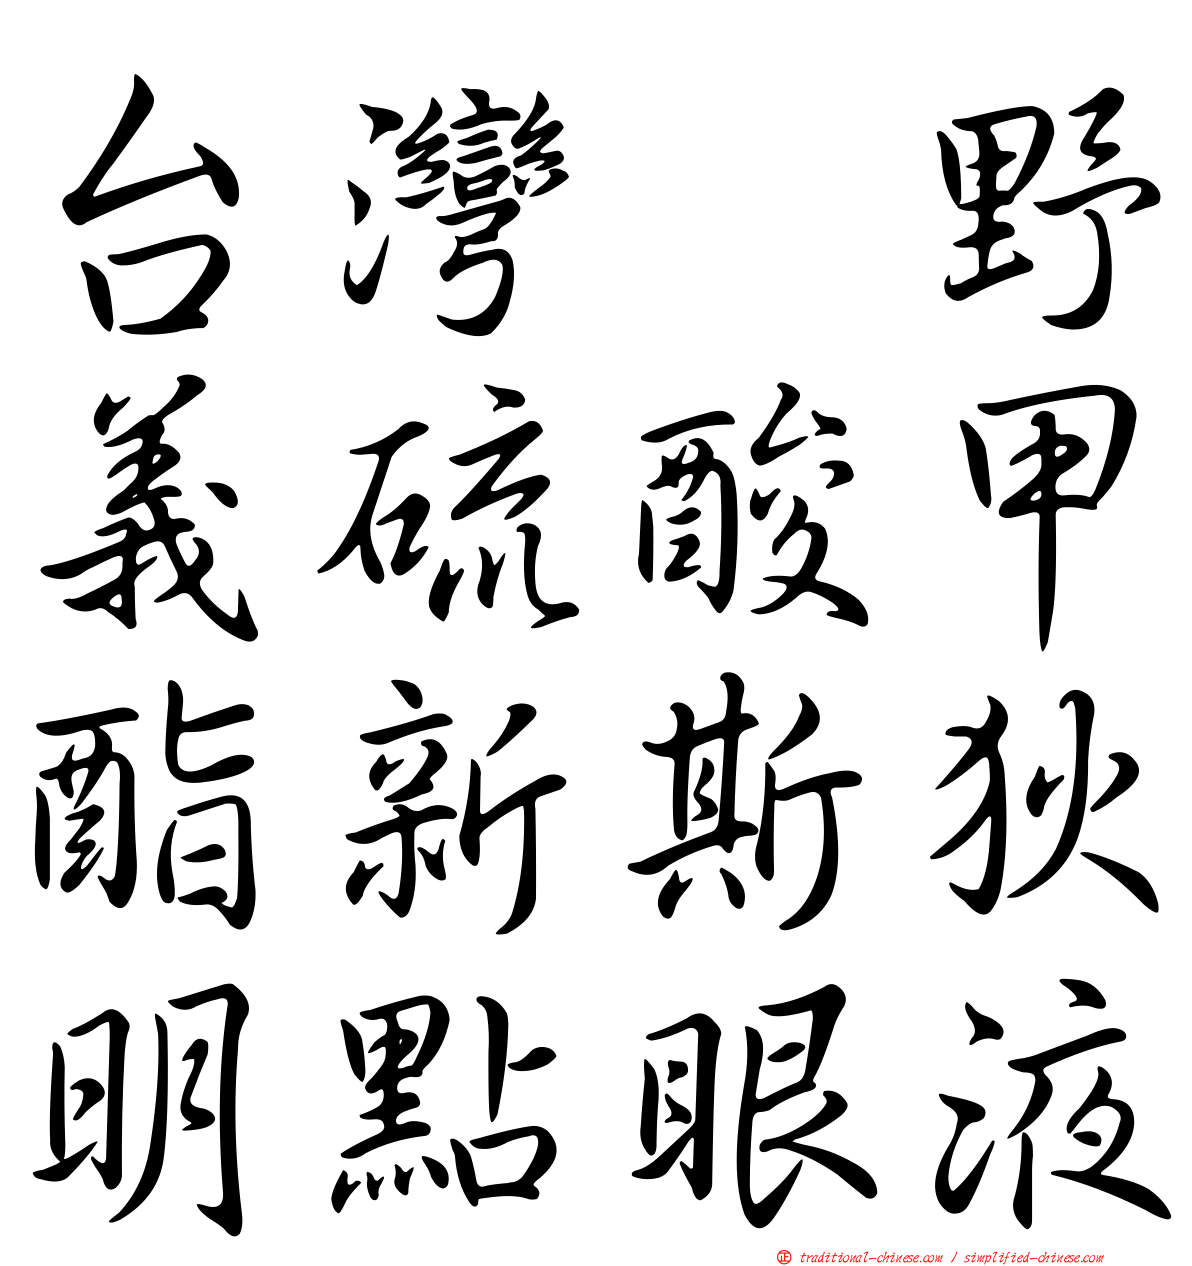 台灣　野
義硫酸甲
酯新斯狄
明點眼液
正 traditional-chinese.com / simplified-chinese.com